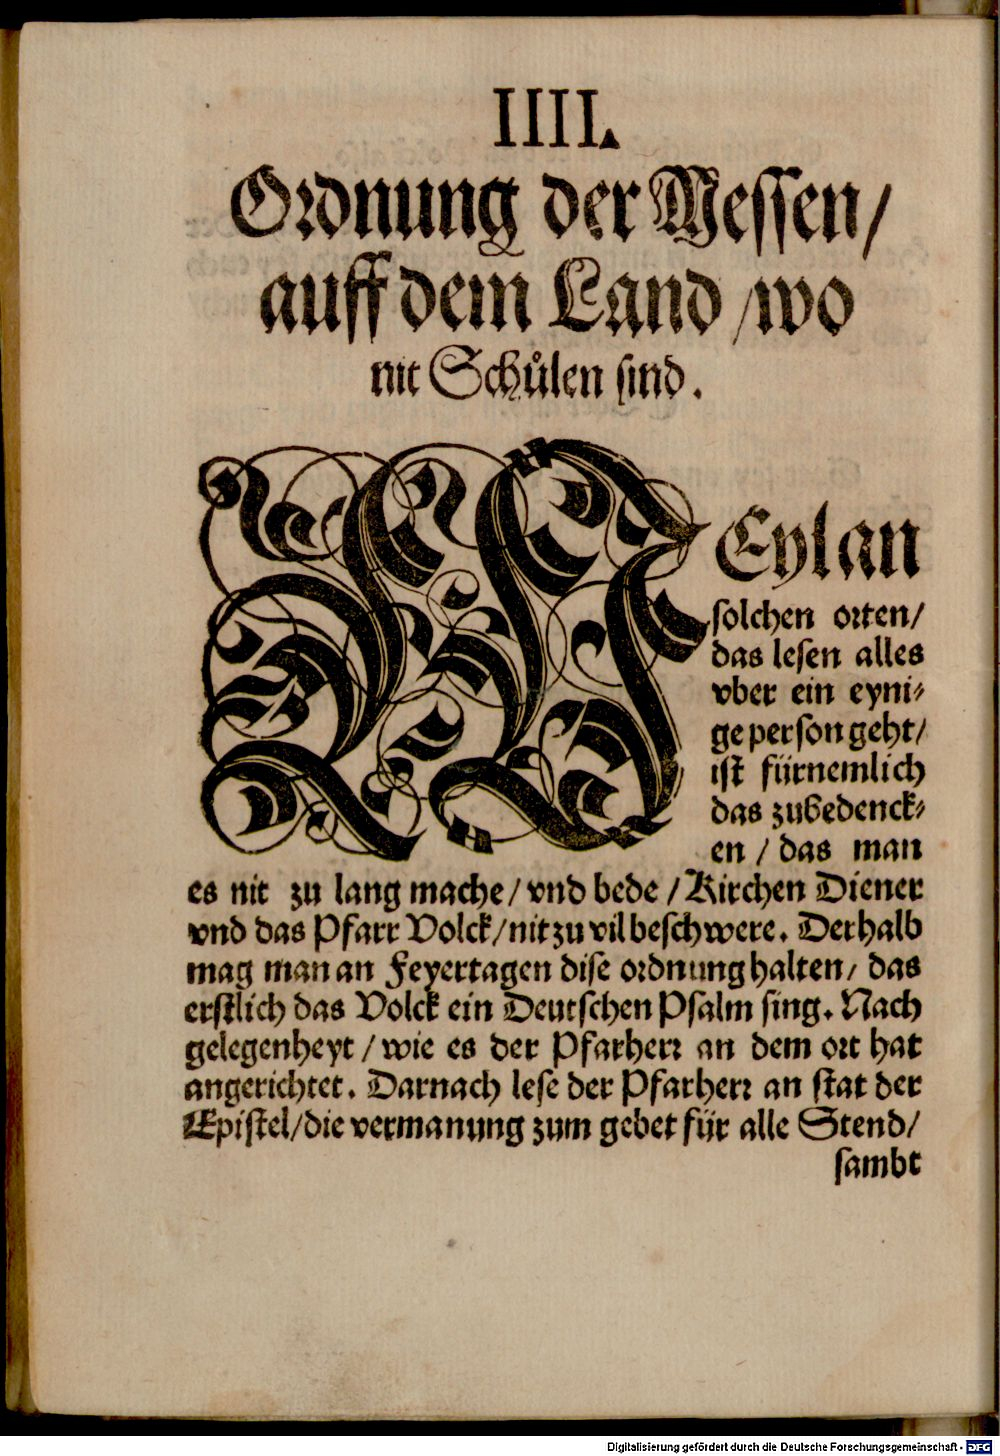 IIII.
Ordnung der Messen/
auff dem Land/wo
nit Schůlen sind.
WEylan
solchen orten/
das lesen alles
vber ein eyni-
ge person geht/
ist fürnemlich
das zubedenck-
en/das man
es nit zu lang mache/vnd bede/Kirchen Diener
vnd das Pfarr Volck/nit zu vil beschwere. Derhalb
mag man an Feyertagen dise ordnung halten/das
erstlich das Volck ein Deutschen Psalm sing. Nach
gelegenheyt/wie es der Pfarherr an dem ort hat
angerichtet. Darnach lese der Pfarherr an stat der
Epistel/die vermanung zum gebet für alle Stend/
sambt
Digitalisierung gefördert durch die Deutsche Forschungsgemeinschaft - DFG